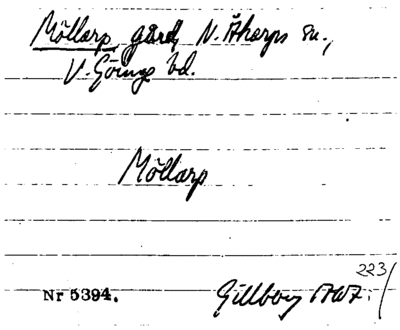 Möllarp, gård, N. Åkarps sn.,
V. Göinge hd.
Möllarp
223/
Nr 5394.